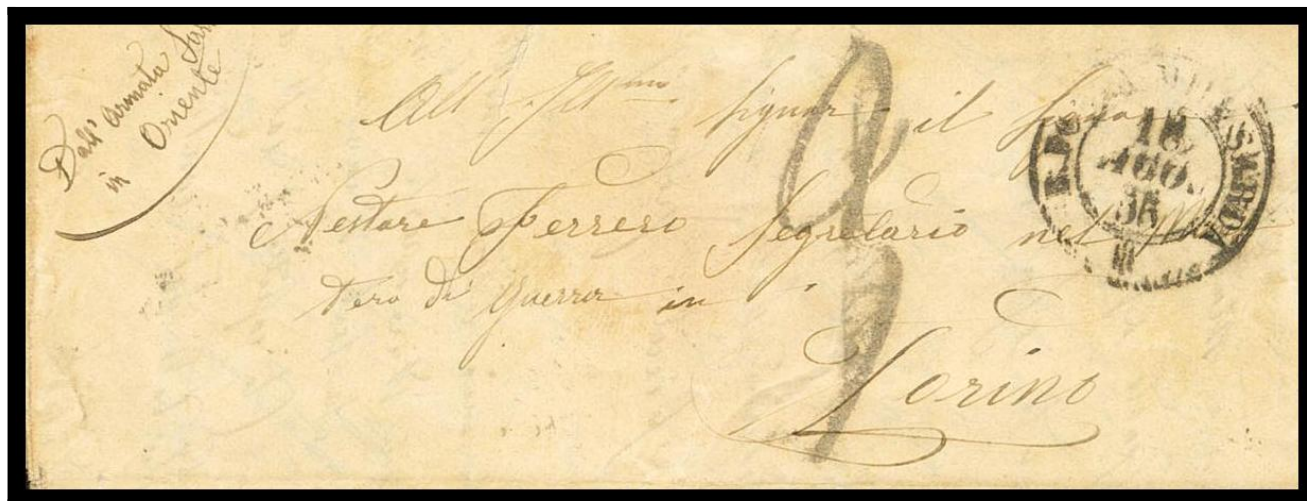 Dall' Armata Sar
in Oriente
All' Ill.mo Signor il Signor
Nestore Ferrero Segretario nel Mini
tero di Guerra in
Torino
18
AGO.